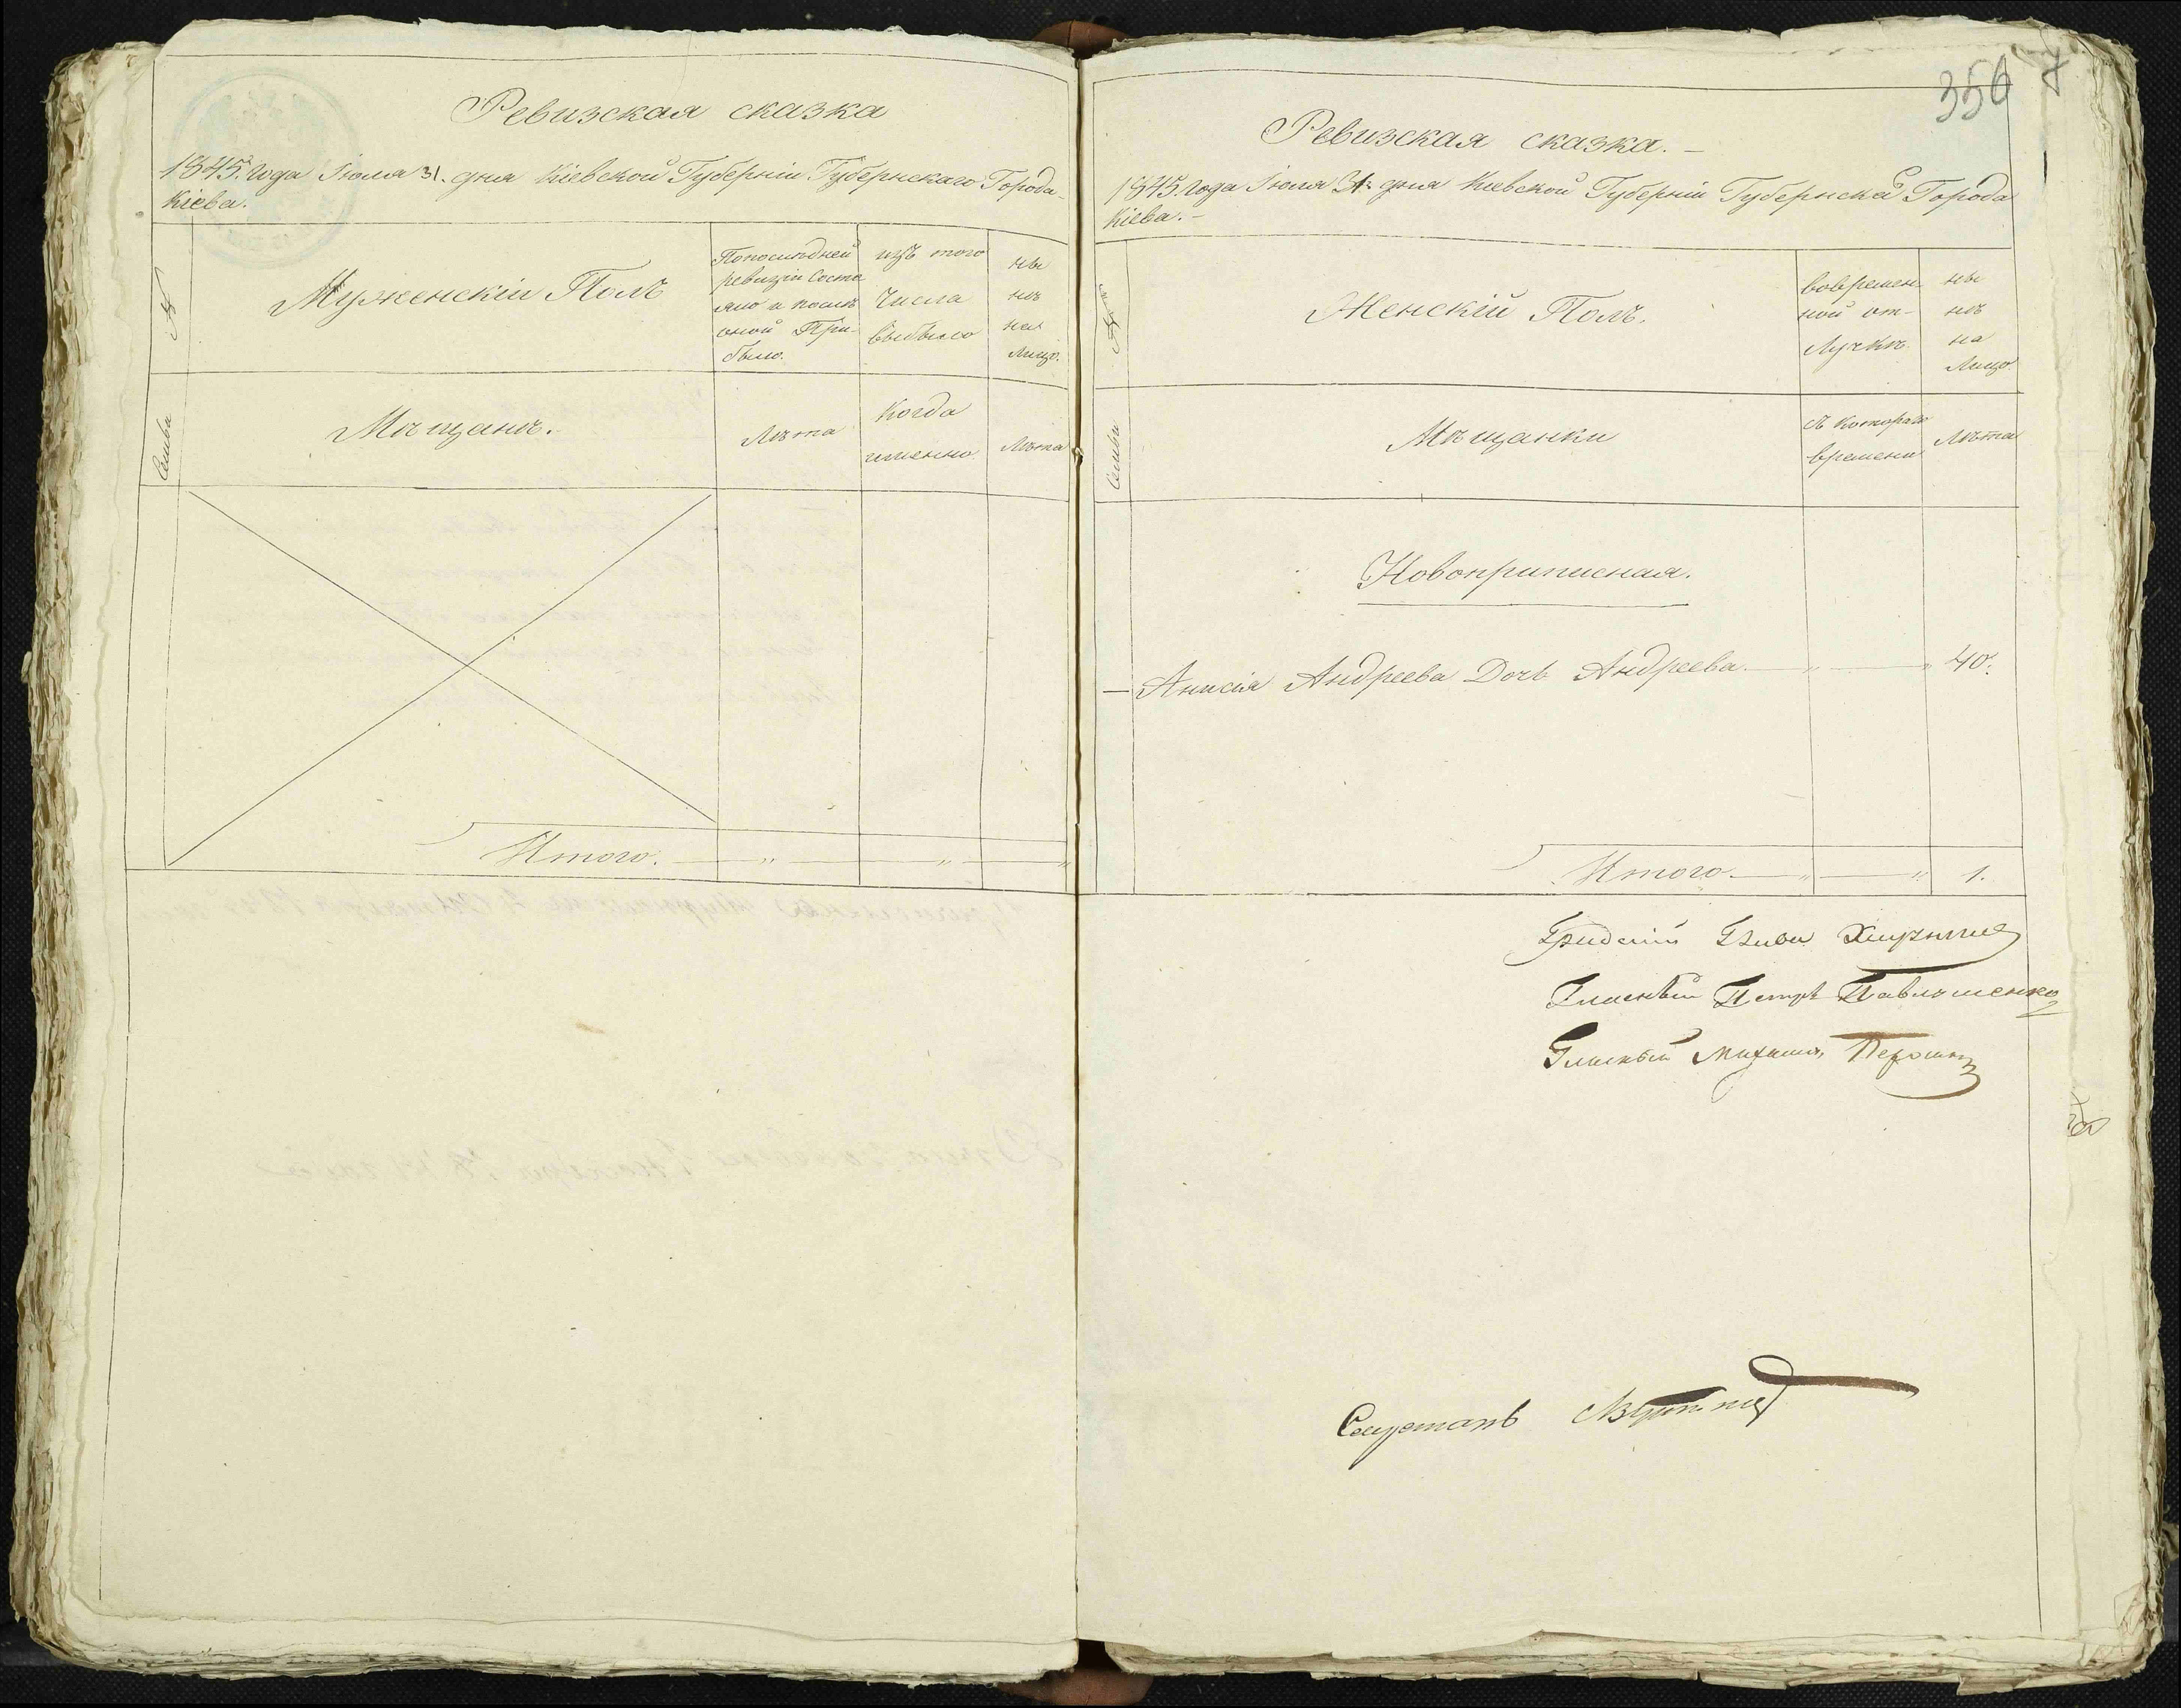 Ревизская сказка
1845. года Іюля 31. дня Кіевской Губерніи Губернскаго Города
Кіева.
№
Мужескій Полъ
Попослѣдней
ревизіи состо
яло и послѣ
оной При-
было.
изъ того
Числа
выбыло
Ны
нѣ
на
Лицо.
Семьи
Мѣщане.
Лѣта
Когда
именно.
Лѣта
Итого. — „ — „ — „
356
Ревизская сказка. —
1845. года Іюля 31. дня Кіевской Губерніи Губернскаго Города
Кіева. —
№
Женскій Полъ.
вовремен
ной от-
Лучкѣ.
ны
нѣ
на
Лицо.
Семьи
Мѣщанки
съ котораго
времени
Лѣта
Новоприписная.
— Анисія Андреева Дочь Андреева. — „ — „ 40.
Итого — „ — „ 1.
Гласный Петръ Павлошенко
Гласный Михаилъ